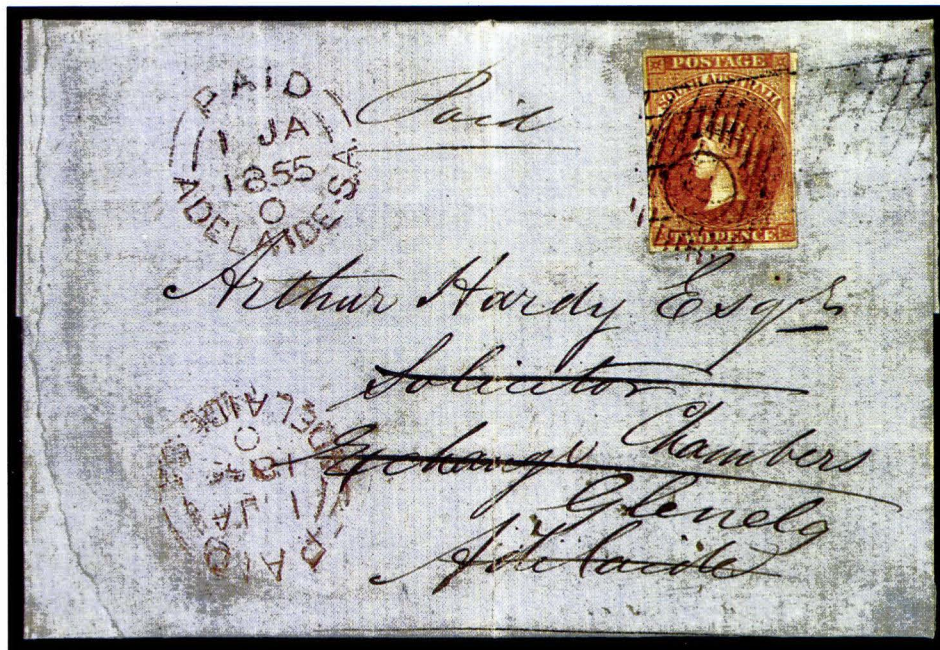 PAID
1 JA
1855
O
ADELAIDE.S.A.
Paid
POSTAGE
SOUTH AUSTRALIA
TWO PENCE
Arthur Hardy Esqre
Solicitor
Exchange Chambers
Glenelg
Adelaide
PAID
1 JA
O
ADELAIDE